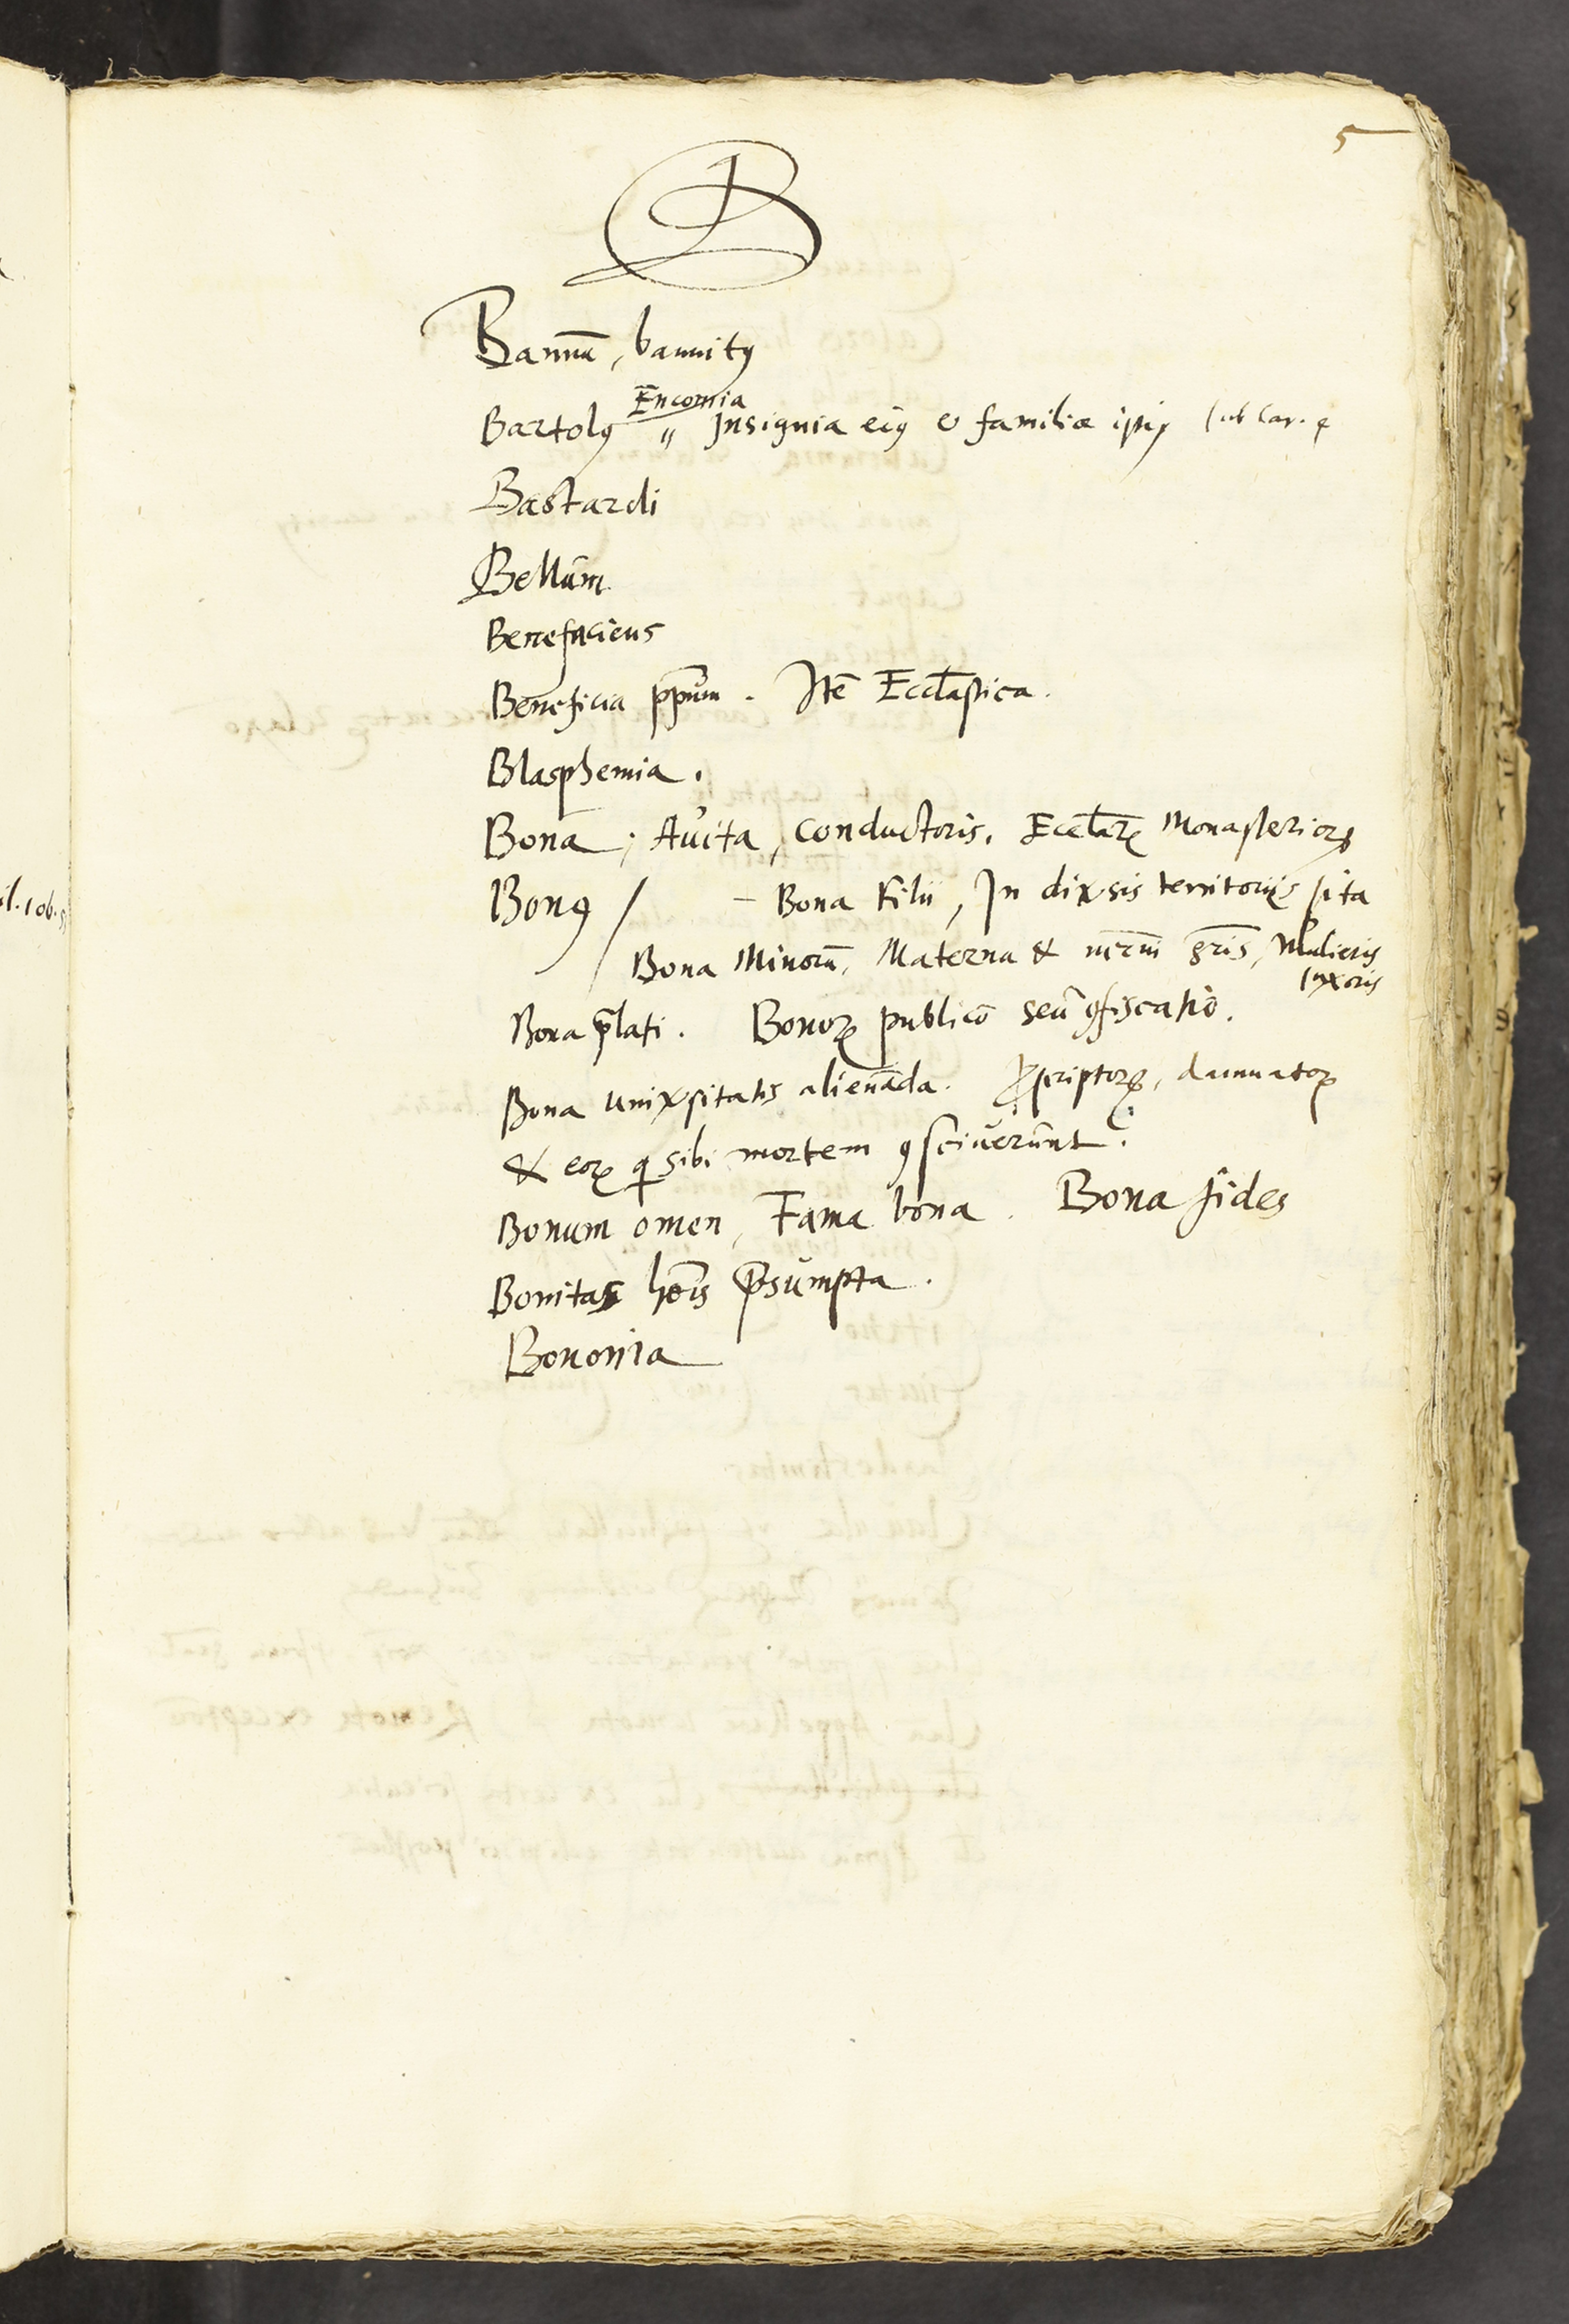 5
B
Bannū, bannitꝰ
Encomia
Bartolꝰ " Insignia eiꝰ & familiæ ipiꝰ sub
Bastardi
Bellum
Benefaciens
Beneficia ppūm. Itē Ecclāstica.
Blasphemia.
Bona, Avita, conductoris, Ecclāꝝ Monasterioꝝ
Bonꝰ / – Bona Filii, In divsis territorijs sita
Bona Minorū, Materna & Mulieris
uxoris
Bona p̄lati. Bonoꝝ publicō seu ꝯfiscatiō.
Bona univsitatis alienāda. ꝓscriptoꝝ, damnatoꝝ
& eoꝝ q sibi mortem ꝯsciverunt.
Bonum omen, Fama bona. Bona fides
Bonitas hoīs p̄sumpta.
Bononia
il. 106.